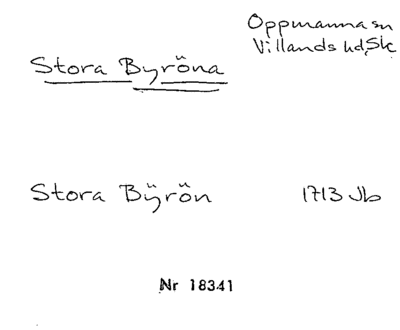 Oppmanna sn
Villands hd, Sk
Stora Byröna
Stora Bÿrön 1713 Jb
Nr 18341